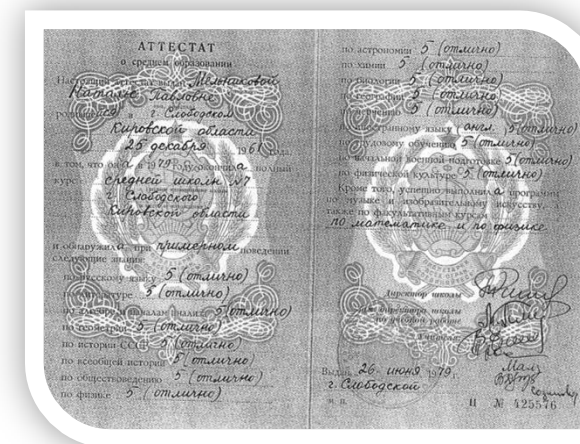 АТТЕСТАТ
о среднем образовании
Настоящий аттестат выдан Мельниковой
Наталье Павловне
родившейся в г. Слободском
Кировской области
25 декабря 1961 года
в том, что она в 1979 году окончила полный
курс средней школы №7
г. Слободского
Кировской области
и обнаружила при примерном поведении
следующие знания:
по русскому языку 5 (отлично)
по литературе 5 (отлично)
по алгебре и началам анализа 5 (отлично)
по геометрии 5 (отлично)
по истории СССР 5 (отлично)
по всеобщей истории 5 (отлично)
по обществоведению 5 (отлично)
по физике 5 (отлично)
по астрономии 5 (отлично)
по химии 5 (отлично)
по биологии 5 (отлично)
по географии 5 (отлично)
по черчению 5 (отлично)
по иностранному языку (англ.) 5 (отлично)
по трудовому обучению 5 (отлично)
по начальной военной подготовке 5 (отлично)
по физической культуре 5 (отлично)
Кроме того, успешно выполнила программу
по музыке и изобразительному искусству,
также по факультативным курсам
по математике и по физике
Директор школы
директора школы
по учебной работе
Учителя:
Выдан 26 июня 1979 г.
г. Слободской
М. П.
Н № 425576